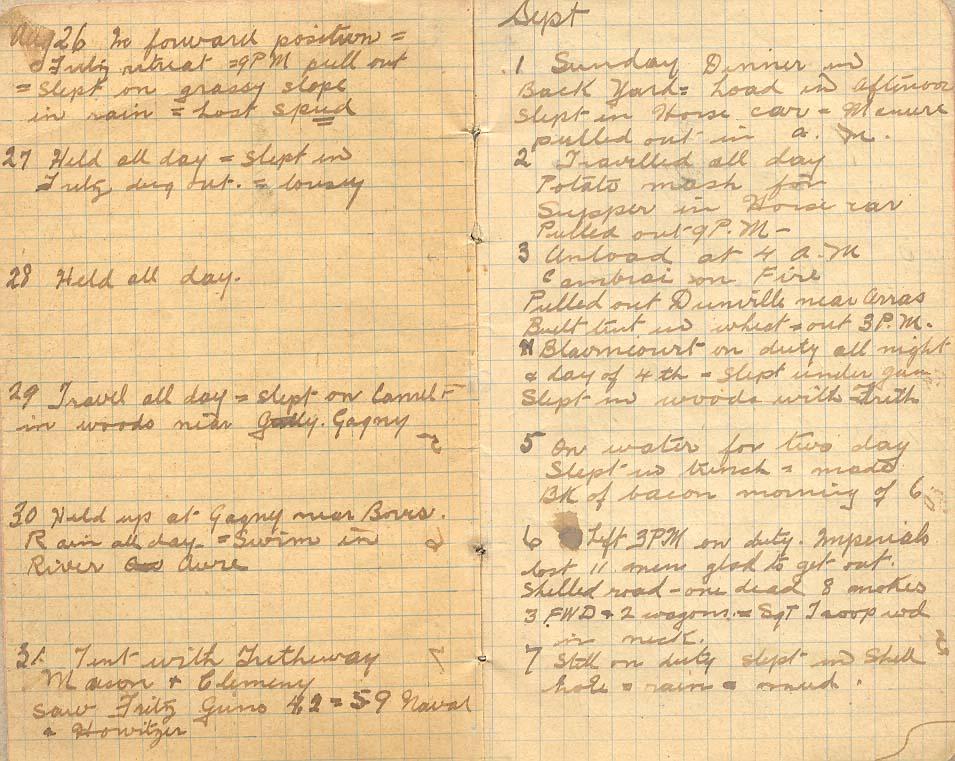 Aug 26 In forward position =
Fritz retreat = 9 PM pull out
= slept on grassy slope
in rain = Lost spud
27 Held all day = slept in
Fritz dug out. = lousey
28 Held all day.
29 Travel all day = slept on
in woods near Gagny
30 Held up at Gagny near Boves.
Rain all day = Swim in
River Avre
31 Tent with Tretheway
Mason + Clemeny
saw Fritz Guns 4.2 = 5.9 Naval
+ Howitzer
Sept
1 Sunday Dinner in
Back Yard = Load in Afternoon
Slept in Horse car = Manure
pulled out in a. m.
2 Travelled all day
Potato mash for
Supper in Horse car
Pulled out 9 P.M -
3 Unload at 4 A.M
Cambrai on Fire
Pulled out Dunville near Arras
Built tent in wheat = out 3 P.M.
4 on duty all night
+ day of 4th = Slept under gun
Slept in woods with Treth
5 On water for two day
Slept in trench = made
BK of bacon morning of 6
6 Left 3PM on duty. Imperials
lost 11 men glad to get out.
Shelled road - one dead 8 mokes
3 FWD + 2 wagons = Sgt Troop wd
in neck.
7 Still on duty slept in Shell
hole = rain = mud.